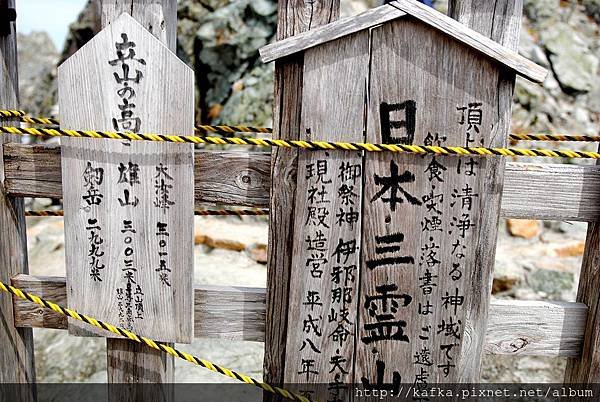 立山の高さ
大汝峰 三〇一五米
雄山 三〇〇三米
剱岳 二九九九米
頂上は清浄なる神域です
飲食・喫煙・落書はご遠慮
日本三霊山
御祭神 伊邪那岐命 天手
現社殿造営 平成八年
http://kafka.pixnet.net/album